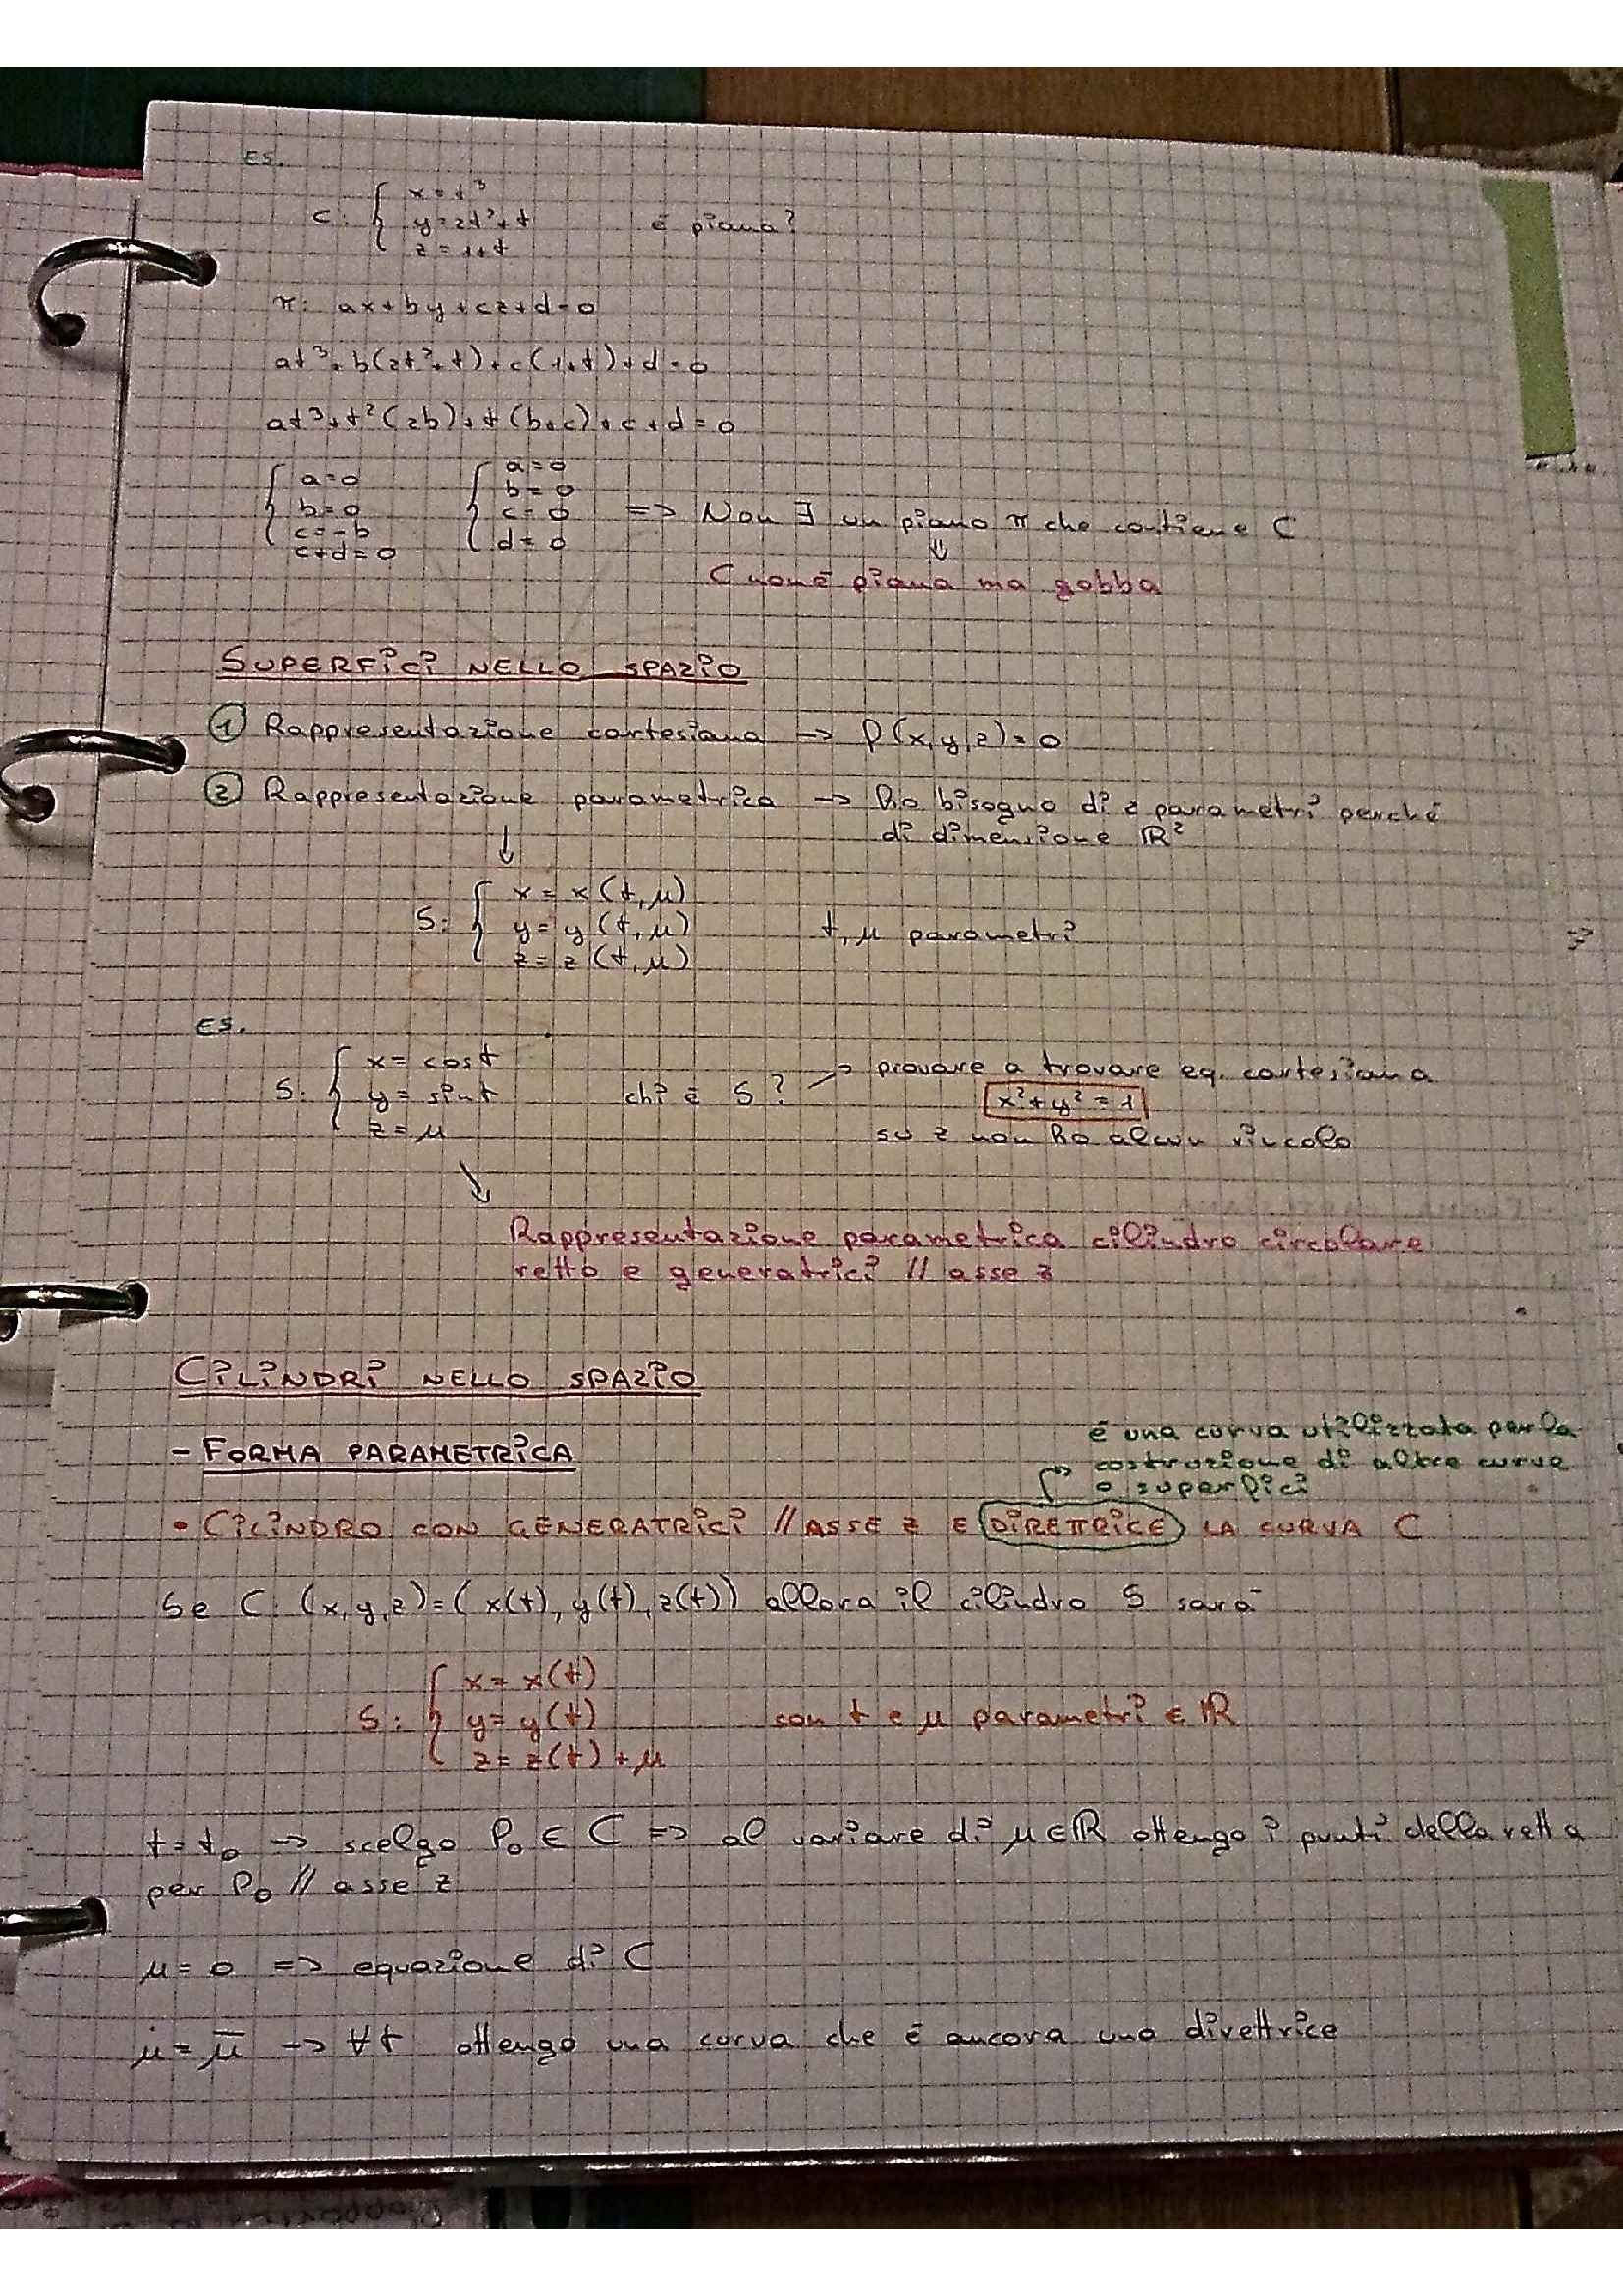 ES.
C: { x = t³
y = 2t² + t è piana?
z = 1 + t
π: ax + by + cz + d = 0
at³ + b(2t² + t) + c(1 + t) + d = 0
at³ + t²(2b) + t(b+c) + c + d = 0
{ a = 0 { a = 0
b = 0 b = 0
c = -b c = 0 => Non ∃ un piano π che contiene C
c+d = 0 d = 0 ⇓
C non è piana ma gobba
SUPERFICI NELLO SPAZIO
① Rappresentazione cartesiana → f(x,y,z) = 0
② Rappresentazione parametrica → ho bisogno di 2 parametri perché
↓ di dimensione ℝ²
S: { x = x(t,μ)
y = y(t,μ) t, μ parametri
z = z(t,μ)
ES.
S: { x = cost → provare a trovare eq. cartesiana
y = sint chi è S? x² + y² = 1
z = μ su z non ho alcun vincolo
↘
Rappresentazione parametrica cilindro circolare
retto e generatrici // asse z
CILINDRI NELLO SPAZIO
è una curva utilizzata per la
- FORMA PARAMETRICA
→ costruzione di altre curve
o superfici
• CILINDRO CON GENERATRICI // ASSE Z E DIRETTRICE LA CURVA C
Se C: (x,y,z) = (x(t), y(t), z(t)) allora il cilindro S sarà
S: { x = x(t)
y = y(t) con t e μ parametri ∈ ℝ
z = z(t) + μ
t = t₀ → scelgo P₀ ∈ C => al variare di μ ∈ ℝ ottengo i punti della retta
per P₀ // asse z
μ = 0 => equazione di C
μ = μ̄ → ∀t ottengo una curva che è ancora una direttrice